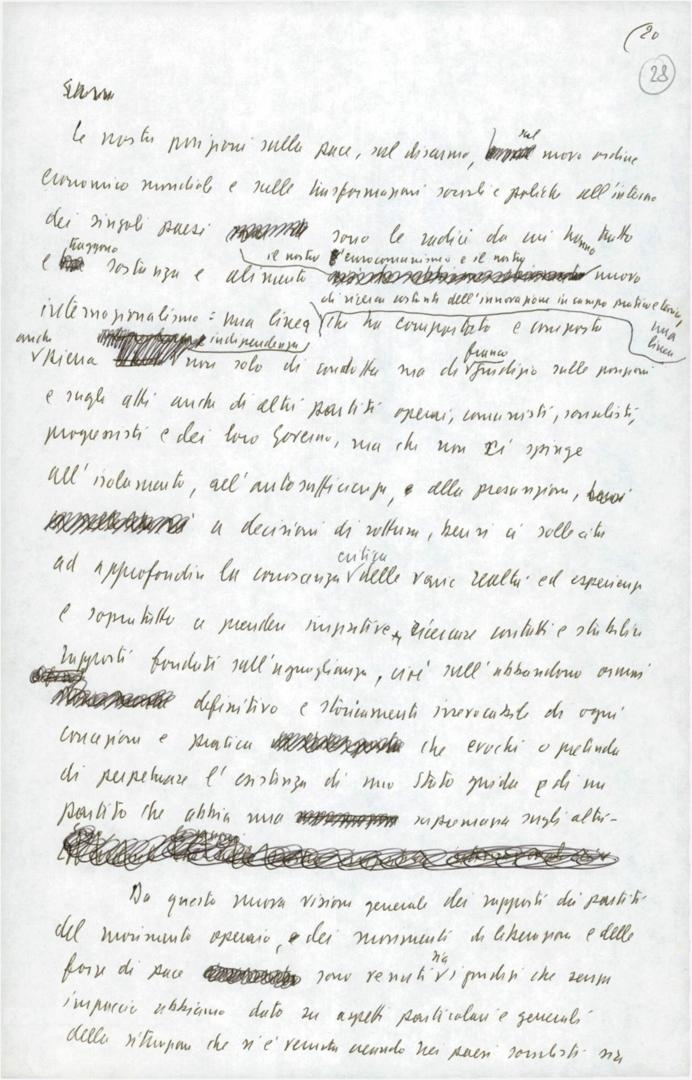 20
28
Le nostre posizioni sulla pace, sul disarmo, sul nuovo ordine
economico mondiale e sulle trasformazioni sociali e politiche all'interno
dei singoli paesi sono le radici da cui hanno tratto
e traggono sostanza e alimento il nostro eurocomunismo e il nostro nuovo
internazionalismo: una linea di ricerca costante dell'innovazione in campo pratico e teorico, una linea che ha comportato e comporta
anche piena indipendenza non solo di condotta ma di franco giudizio sulle posizioni
e sugli atti anche di altri partiti operai, comunisti, socialisti,
progressisti e dei loro Governo, ma che non ci spinge
all'isolamento, all'autosufficienza, e alla presunzione,
a decisioni di rottura, bensì ci sollecita
ad approfondire la conoscenza critica delle varie realtà ed esperienze
e soprattutto a prendere iniziative, ricercare contatti e stabilire
rapporti fondati sull'uguaglianza, cioè sull'abbandono ormai
definitivo e storicamente irrevocabile di ogni
concezione e pratica che evochi o pretenda
di perpetuare l'esistenza di uno Stato guida e di un
partito che abbia una supremazia sugli altri.
Da questa nuova visione generale dei rapporti tra partiti
del movimento operaio, e dei movimenti di liberazione e delle
forze di pace sono venuti i giudizi che senza
impaccio abbiamo dato su aspetti particolari e generali
della situazione che si è venuta creando nei paesi socialisti sia